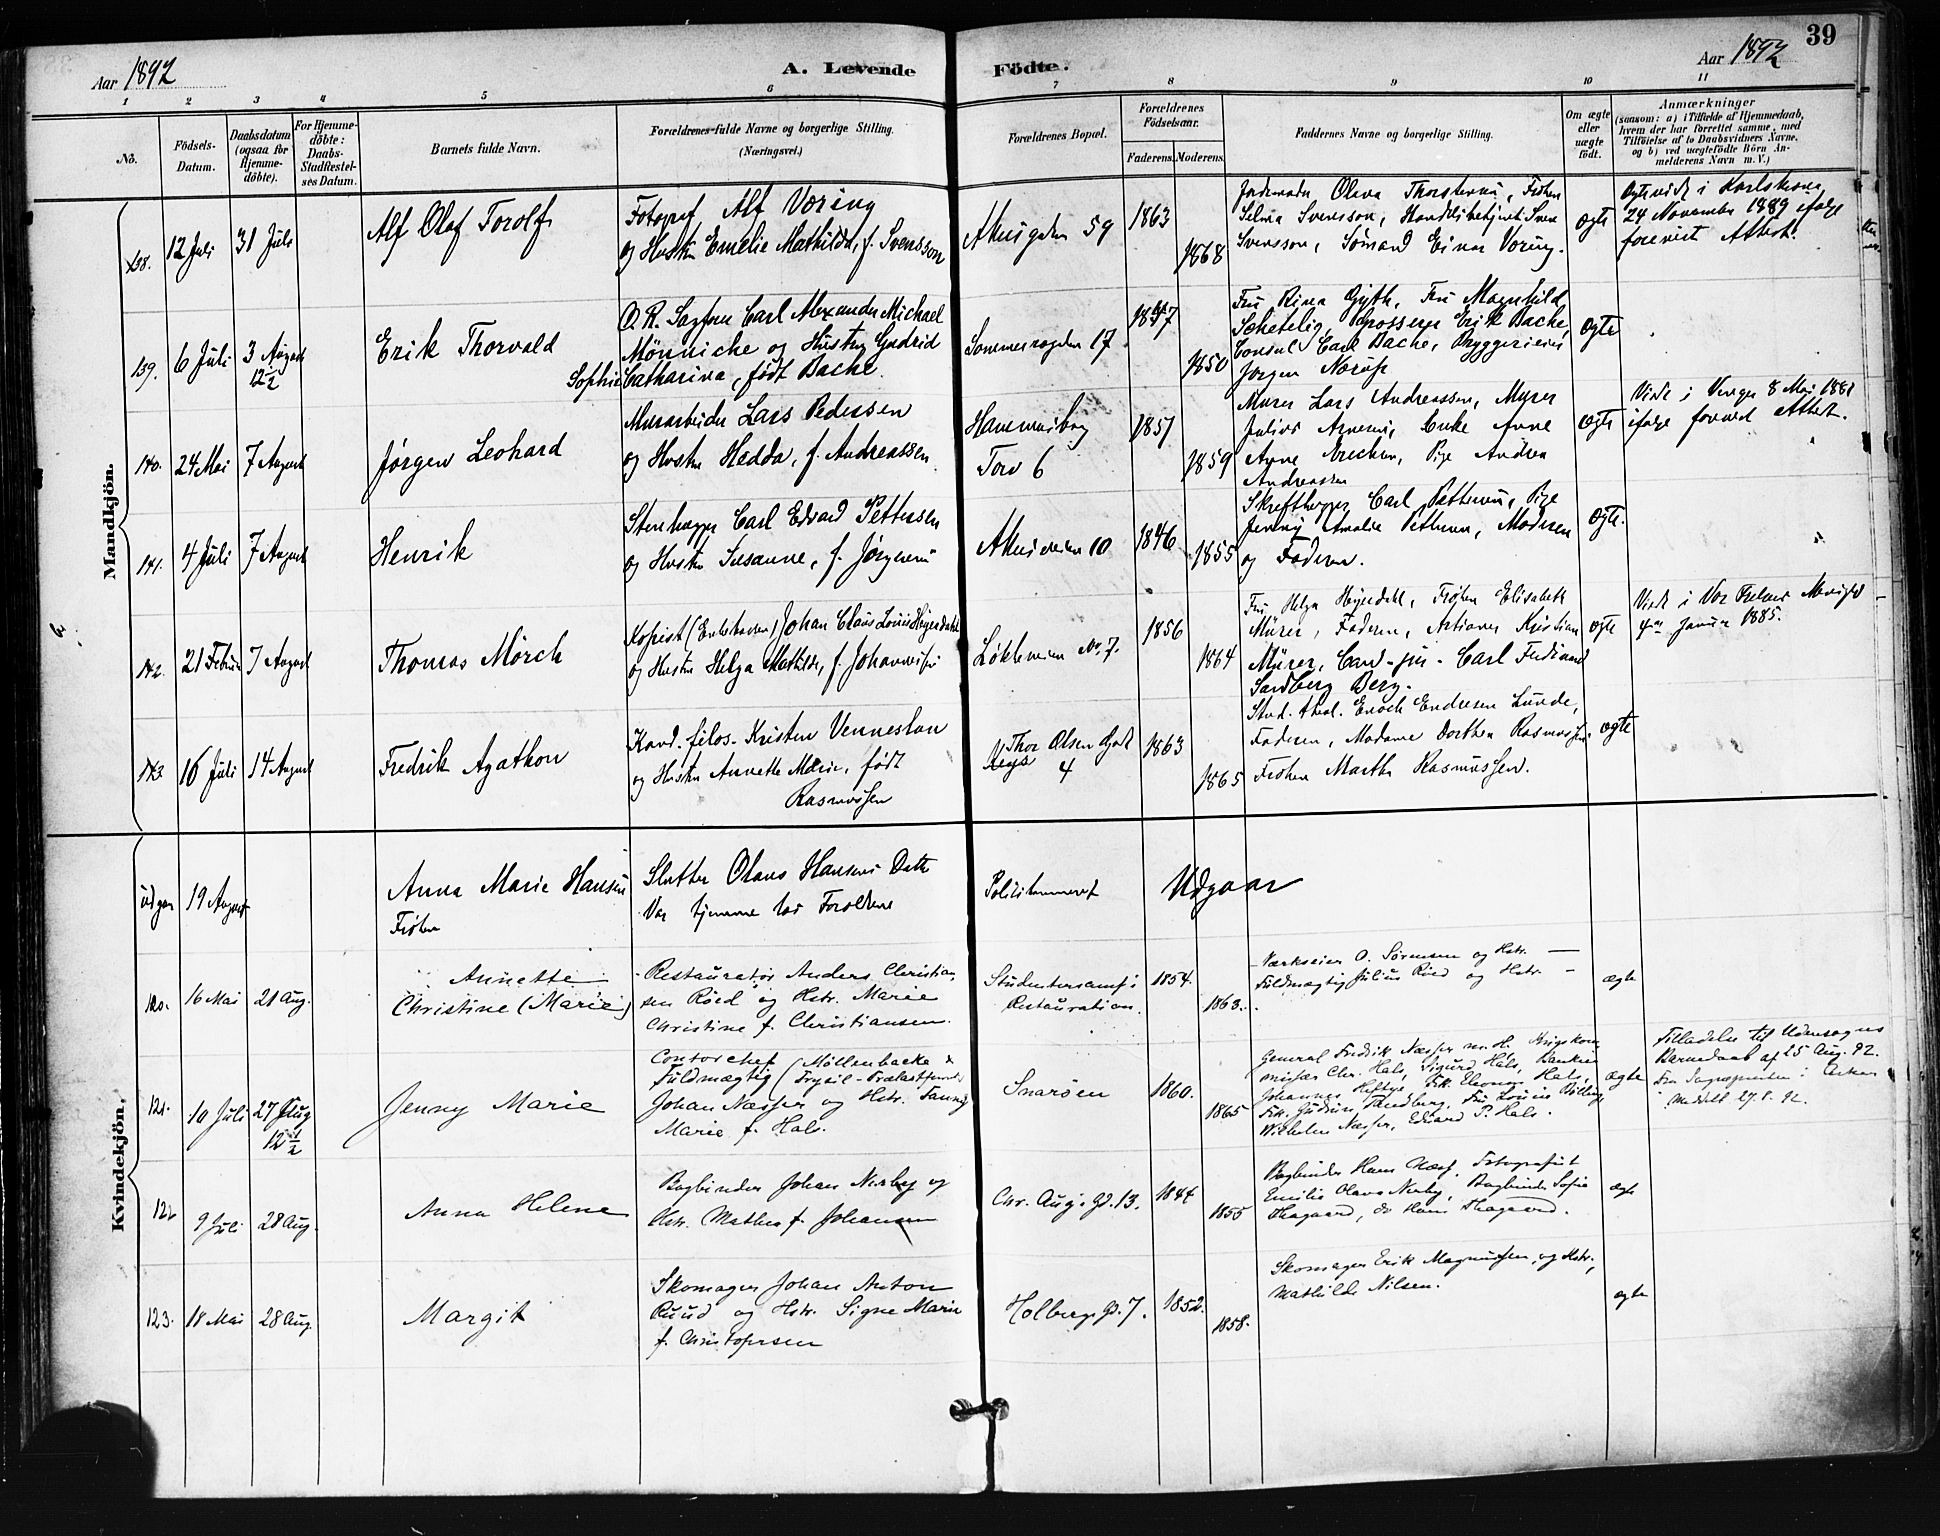 39
Aar 1892 A. Levende Födte. Aar 1892
1 2 3 4 5 6 7 8 9 10 11
No.
Födsels-Datum.
Daabsdatum (ogsaa for Hjemme-döbte).
For Hjemme-döbte: Daabs-Stadfæstel-ses Datum.
Barnets fulde Navn.
Forældrenes fulde Navne og borgerlige Stilling.
(Næringsvei.)
Forældrenes Bopæl.
Forældrenes Födselsaar.
Faderens. Moderens.
Faddernes Navne og borgerlige Stilling.
Om ægte eller uægte födt.
Anmærkninger
(saasom: a) i Tilfælde af Hjemmedaab,
hvem der har forrettet samme, med
Tilföielse af to Daabsvidners Navne.
og b) ved uægtefödte Börn An-
melderens Navn m. V.)
Mandkjön.
138. 12 Juli 31 Juli
Alf Olaf Torolf
Fotograf Alf Væring
og Hustru Emelie Mathilda, f. Svensson
Akersgaden 59 1863 1868
Jordemoder Olava Thorstensen, Frøken
Selma Svensson, Handelsbetjent Sven
Svensson, Sømand Einar Væring.
Ægte
Ægteviet i Karlskrona
24 November 1889 ifølge
forevist Attest.
139. 6 Juli 3 August 12½
Erik Thorvald
O. R. Sagfører Carl Alexander Michael
Mönniche og Hustru Gudrid
Sophie Catharina, født Bache
Sommerrogaden 17. 1847 1850
Fru Rina Gjyth, Fru Magnhild
Schetelig, Grosserer Erik Bache,
Consul Carl Bache, Bryggerieier
Jørgen Nærup
Ægte
140. 24 Mai 7 August
Jørgen Leohard
Murarbeider Lars Pedersen
og Hustru Hedda, f. Andreassen
Hammersborg
Torv 6
1857 1859
Murer Lars Andreassen, Murer
Julius Arnesen, Enke Anne
Anne Erichsen, Pige Andrea
Andreassen
Ægte
Viet i Venger 8 Mai 1881
ifølge forevist Attest.
141. 4 Juli 7 August
Henrik
Stenhugger Carl Edvard Pettersen
og Hustru Susanne, f. Jørgensen
Akersveien 10 1846 1855
Skrifthugger Carl Pettersen, Pige
Jenny Amalie Pettersen, Moderen
og Faderen.
Ægte.
142. 21 Februar 7 August
Thomas Mörch
Kopist (Enkekassen) Johan Claus Louis Heyerdahl
og Hustru Helga Mathilde, f. Johannessen
Løkkeveien No. 7. 1856 1864
Fru Helga Heyerdahl, Frøken Elisabeth
Mürer, Faderen, Kristian
Mürer, Cand. jur. Carl Ferdinand
Sandberg Berg.
Ægte
Viet i Vor Frelsers Menighed
4de Januar 1885.
143. 16 Juli 14 August
Fredrik Agathon
Kand. filos. Kristen Venneslan
og Hustru Annette Marie, født
Rasmussen
Thor Olsens Gade
4
1863 1865
Stud. theol. Enoch Endresen Lunde,
Faderen, Madame Dorthea Rasmussen,
Frøken Marthe Rasmussen.
Ægte
Kvindekjön.
udgaar 19 August
Anna Marie Hansen
Frøken
Slagter Olaus Hansens Datter
Var hjemme hos Forældrene
Politikammeret
Udgaar
120. 16 Mai 21 Aug.
Annette
Christine (Marie)
Restauratør Anders Christian-
sen Røed og Hstr. Marie
Christine f. Christiansen.
Studentersamf.s
Restauration.
1854. 1863.
Værkseier O. Sørensen og Hstr. —
Fuldmægtig Julius Røed og Hstr. —
ægte
121. 10 Juli 27 Aug 12½
Jenny Marie
Contorchef (Møllenbacke &
Fuldmægtig (Trysil-Trælastforretn.)
Johan Næsser og Hstr. Fanny
Marie f. Hals.
Snarøen 1860. 1865
General Fredrik Næsser m. H. Krigskom-
missær Chr. Hals, Sigurd Hals, Bankier
Johannes Heftye, Frk. Eleonor Hals,
Frk. Gudrun Tandberg, Fru Louise Bölling,
Wilhelm Næsser, Edvard P. Hals.
ægte
Tilladelse til Udensogns
Barnedaab af 25 Aug. 92.
Fra Sognepresten i Asker
Meddelt 27.8.92.
122 9 Juli 28 Aug.
Anna Helene
Bogbinder Johan Nerby og
Hstr. Mathea f. Johansen
Chr. Aug. Gd. 13. 1844 1855
Bogbinder Hans Næss, Fotografist
Emilie Olava Nerby, Bogbinder Sofie
Haagaard, do Hans Haagaard.
ægte
123. 18 Mai 28 Aug.
Margit
Skomager Johan Anton
Ruud og Hstr. Signe Marie
f. Christofersen
Holbergs Gd. 7. 1852. 1858.
Skomager Erik Magnussen, og Hstr.,
Mathilde Nilsen.
ægte